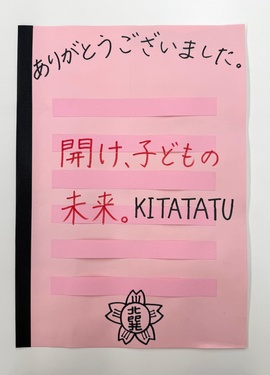 ありがとうございました。
開け、子どもの
未来。KITATATU
北巽